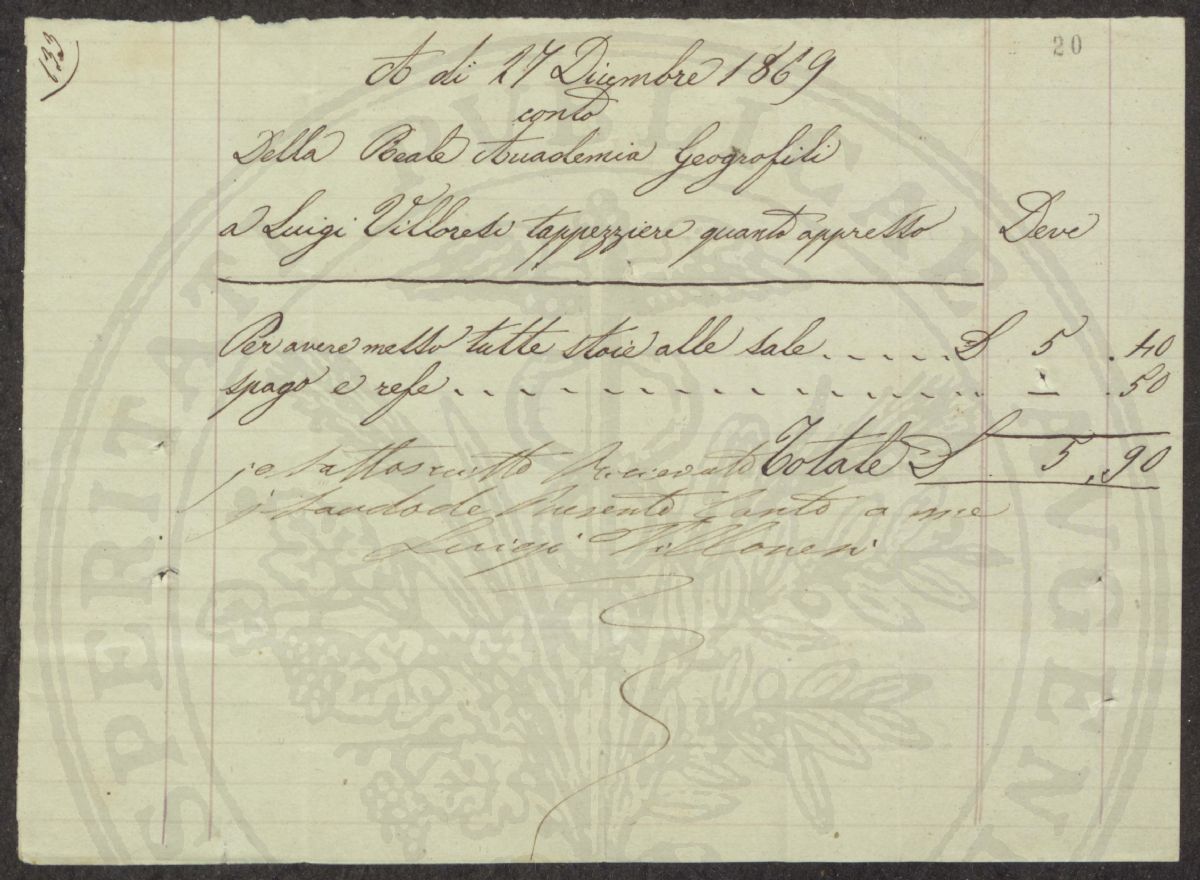 133
20
A di 27 Dicembre 1869
conto
Della Reale Accademia Geogrofili
a Luigi Villoresi tappezziere quanto appresso Deve
Per avere messo tutte stoie alle sale..... £ 5.40
spago e refe.............. — .50
Totale £ 5,90
io sottoscritto Riceveuto
il saudo del Presente Conto a me
Luigi Villoresi
PERITAT PUBLICAE AUGENDAE